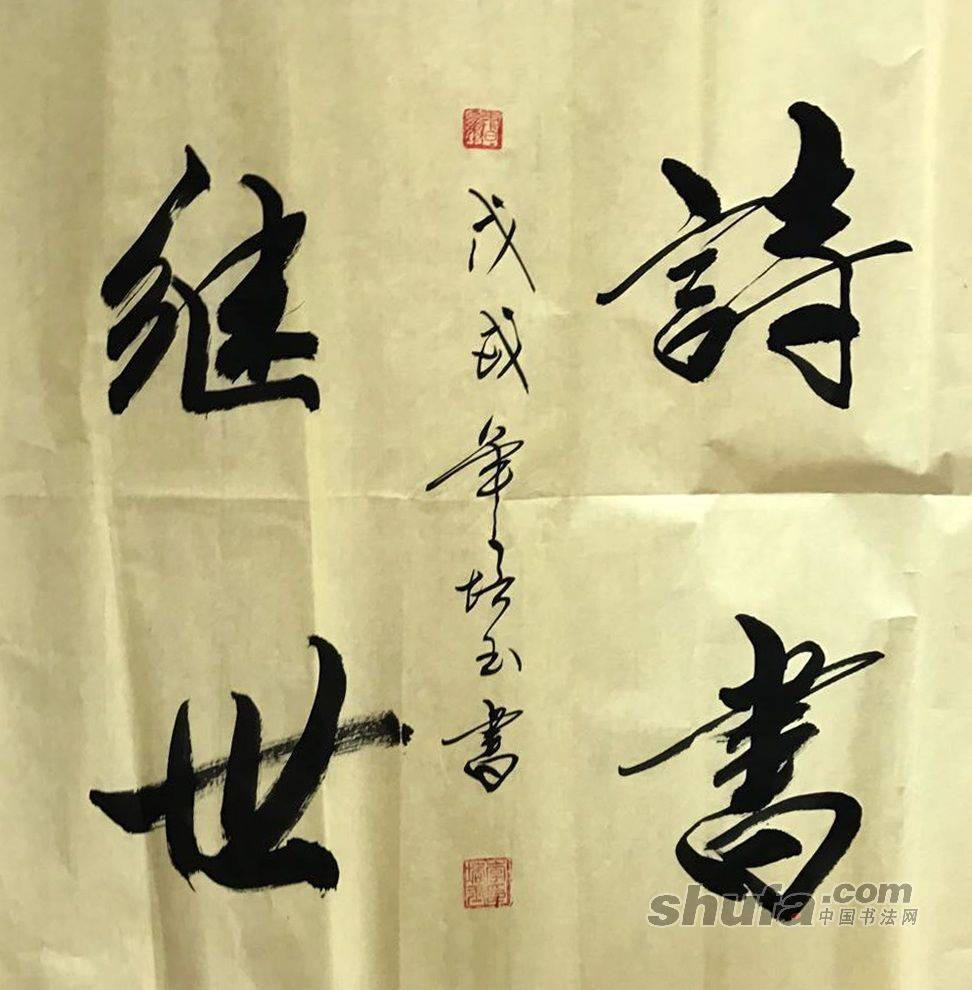 詩書
继世
戊戌年培玉書
shufa.com
中国书法网